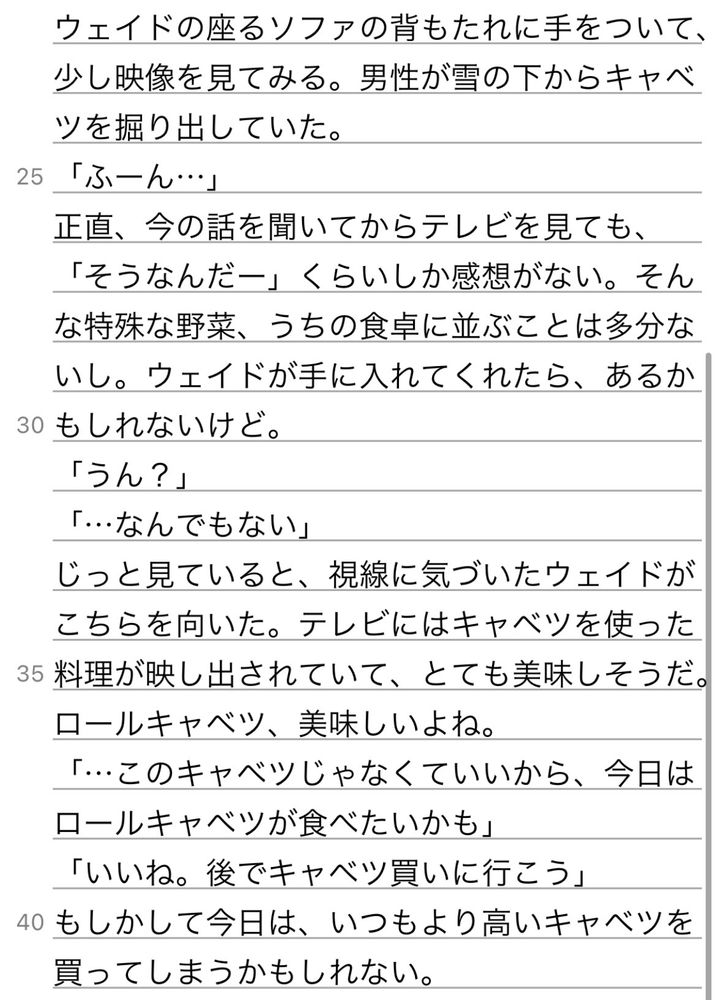 ウェイドの座るソファの背もたれに手をついて、
少し映像を見てみる。男性が雪の下からキャベ
ツを掘り出していた。
25 「ふーん…」
正直、今の話を聞いてからテレビを見ても、
「そうなんだー」くらいしか感想がない。そん
な特殊な野菜、うちの食卓に並ぶことは多分な
いし。ウェイドが手に入れてくれたら、あるか
30 もしれないけど。
「うん？」
「…なんでもない」
じっと見ていると、視線に気づいたウェイドが
こちらを向いた。テレビにはキャベツを使った
35 料理が映し出されていて、とても美味しそうだ。
ロールキャベツ、美味しいよね。
「…このキャベツじゃなくていいから、今日は
ロールキャベツが食べたいかも」
「いいね。後でキャベツ買いに行こう」
40 もしかして今日は、いつもより高いキャベツを
買ってしまうかもしれない。